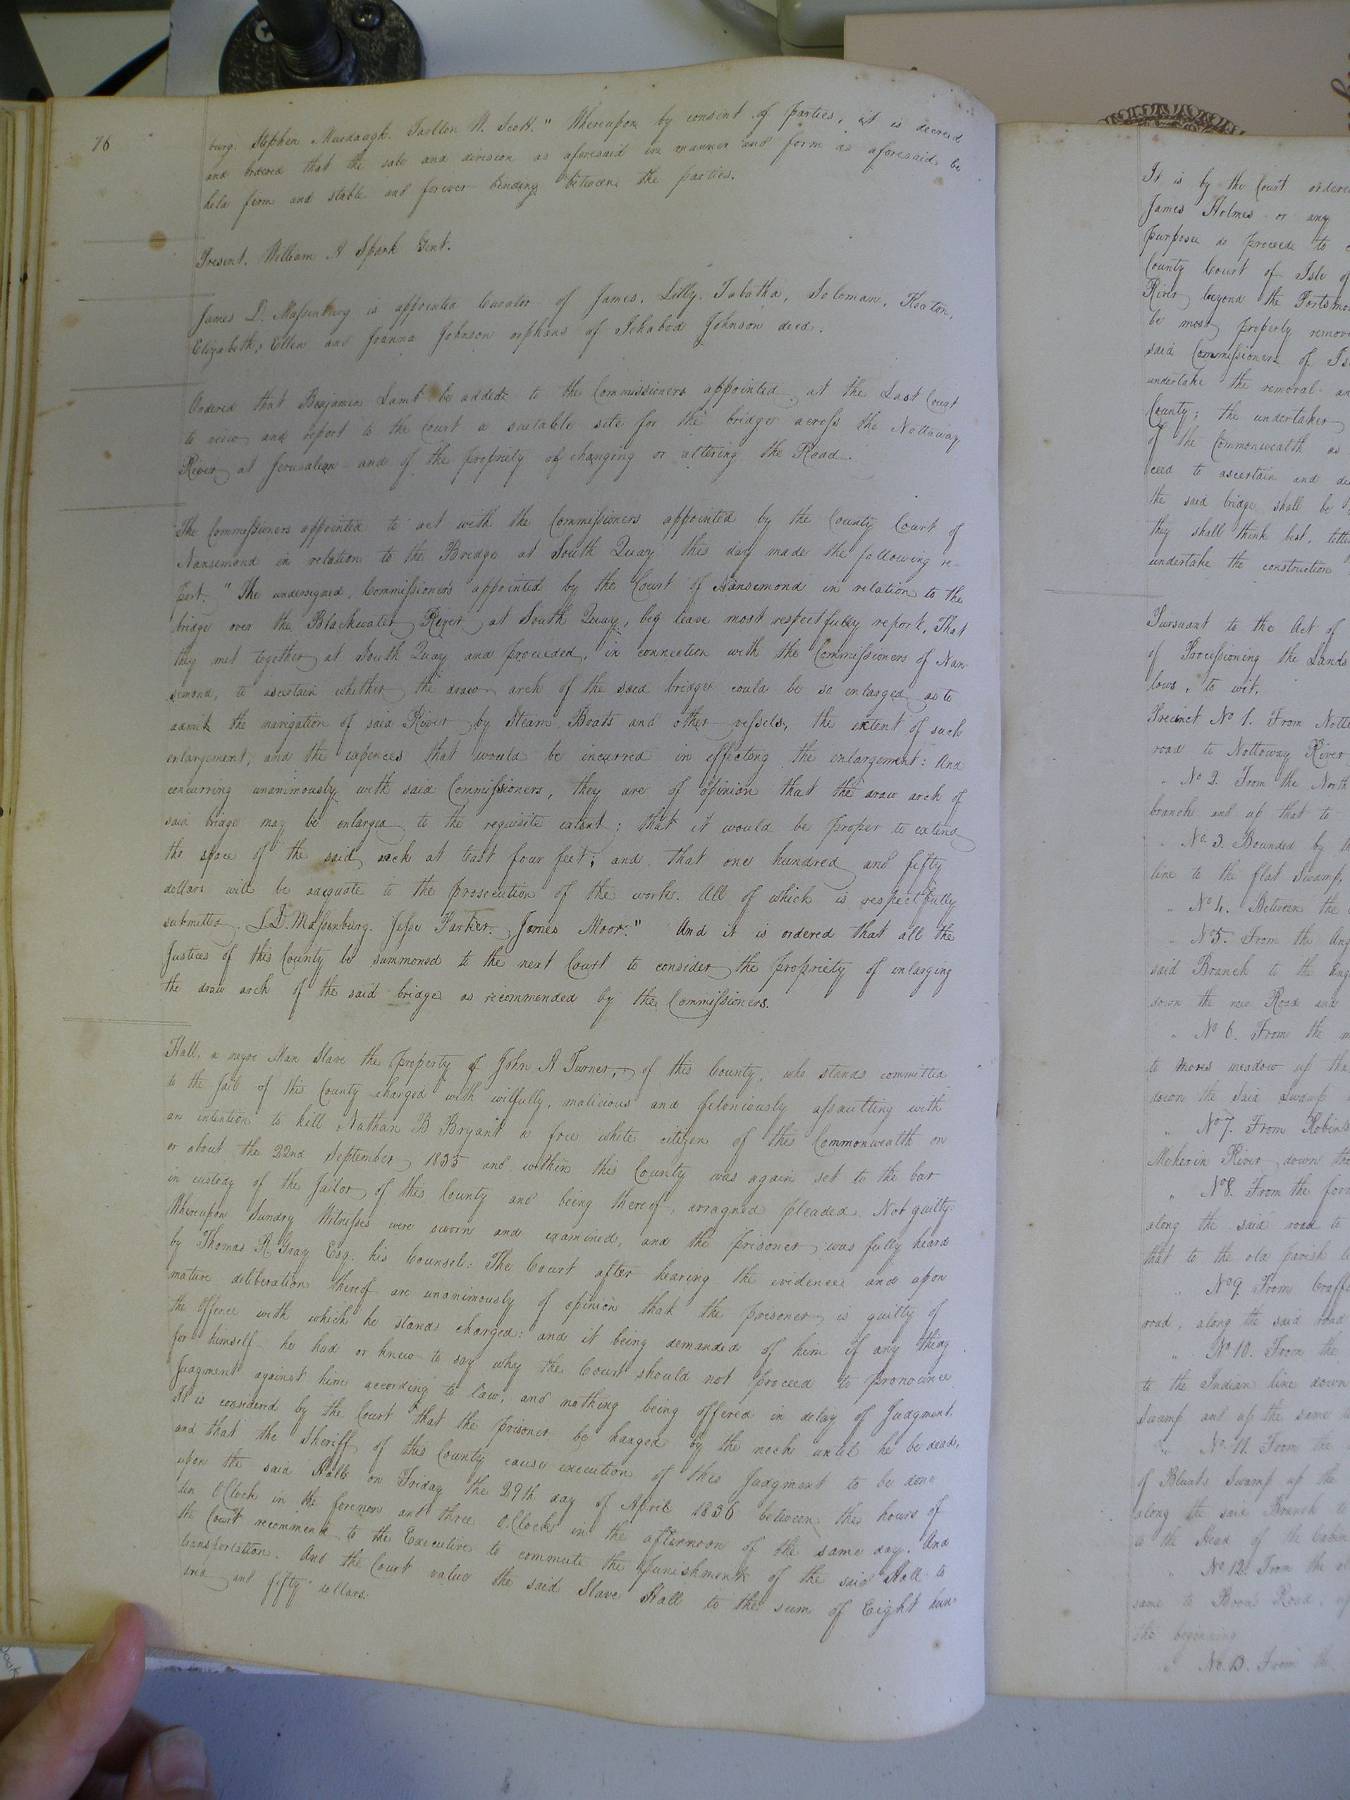 76
burg. Stephen Murdaugh. Carlton W. Scott." Whereupon by consent of parties, it is decreed
and ordered that the sale and division as aforesaid in manner and form as aforesaid be
held firm and stable and forever binding between the parties.
Present. William A Spark Gent.
James D. Massenburg is appointed Curator of James, Lilly, Tabatha, Soloman, Keaton,
Elizabeth, Ellen and Joanna Johnson orphans of Ichabod Johnson decd.
Ordered that Benjamin Lamb be added to the Commissioners appointed at the Last Court
to view and report to the Court a suitable site for the bridge across the Nottoway
River at Jerusalem and of the propriety of changing or altering the Road.
The Commissioners appointed to act with the Commissioners appointed by the County Court of
Nansemond in relation to the Bridge at South Quay this day made the following re-
port. "The undersigned, Commissioners appointed by the Court of Nansemond in relation to the
bridge over the Blackwater River at South Quay, beg leave most respectfully report, That
they met together at South Quay and proceeded, in connection with the Commissioners of Nan-
semond, to ascertain whether the draw arch of the said bridge could be so enlarged as to
admit the navigation of said River by Steam Boats and other vessels, the extent of such
enlargement, and the expences that would be incurred in effecting the enlargement: And
concurring unanimously with said Commissioners, they are of opinion that the draw arch of
said bridge may be enlarged to the requisite extent; that it would be proper to extend
the space of the said arch at least four feet; and that one hundred and fifty
dollars will be adequate to the prosecution of the work. All of which is respectfully
submitted. J.D. Massenburg. Jesse Parker. James Moor." And it is ordered that all the
Justices of this County be summoned to the next Court to consider the propriety of enlarging
the draw arch of the said bridge as recommended by the Commissioners.
Hall, a negro Man Slave the property of John A Turner, of this County, who stands committed
to the Jail of this County charged with wilfully, malicious and feloniously assaulting with
an intention to kill Nathan B Bryant a free white citizen of this Commonwealth on
or about the 22nd September 1835 and within this County was again set to the bar
in custody of the Jailor of this County and being thereof arraigned pleaded Not guilty.
Whereupon Sundry Witnesses were sworn and examined, and the prisoner was fully heard
by Thomas R Gray Esq. his Counsel: The Court after hearing the evidence and upon
mature deliberation thereof are unanimously of opinion that the prisoner is guilty of
the Offence with which he stands charged: and it being demanded of him if any thing
for himself he had or knew to say why the Court should not proceed to pronounce
Judgment against him according to law, and nothing being offered in delay of Judgment.
It is considered by the Court that the prisoner be hanged by the neck until he be dead,
and that the Sheriff of this County cause execution of this Judgment to be done
upon the said Hall on Friday the 29th day of April 1836 between the hours of
ten OClock in the forenoon and three OClock in the afternoon of the same day. And
the Court recommend to the Executive to commute the punishment of the said Hall to
transportation. And the Court value the said Slave Hall to the sum of Eight hun-
dred and fifty dollars.
It is by the Court ordered
James Holmes or any
purpose do proceed to
County Court of Isle of
River beyond the Portsmo
be most properly remov
said Commissioners of Is
undertake the removal an
County; the undertaker
of the Commonwealth as
ceed to ascertain and de
the said bridge shall be
they shall think best.
undertake the construction
Pursuant to the Act of
of Processioning the Lands
lows, to wit,
Precinct No 1. From Notto
road to Nottoway River
" No 2. From the North
branch and up that to
" No. 3. Bounded by th
line to the flat Swamp,
" No 4. Between the
" No 5. From the
said Branch to the
down the new Road and
" No 6. From the m
to Mores meadow up the
down the said Swamp
" No 7. From Robins
Meherin River down the
" No 8. From the for
along the said road to
that to the old parish
" No 9. From
road, along the said road
" No. 10. From the
to the Indian line down
Swamp and up the same
" No. 11. From the
of Blunts Swamp up the
along the said Branch to
to the Head of the Cabin
" No 12. From the
same to Boons Road,
the beginning
" No. 13. From the